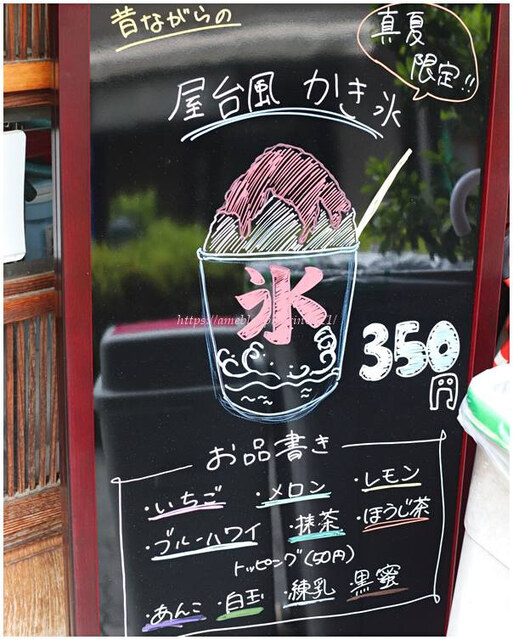 昔ながらの
真夏
限定!!
屋台風 かき氷
氷
350
円
お品書き
・いちご ・メロン ・レモン
・ブルーハワイ ・抹茶 ・ほうじ茶
トッピング(50円)
・あんこ ・白玉 ・練乳 ・黒蜜